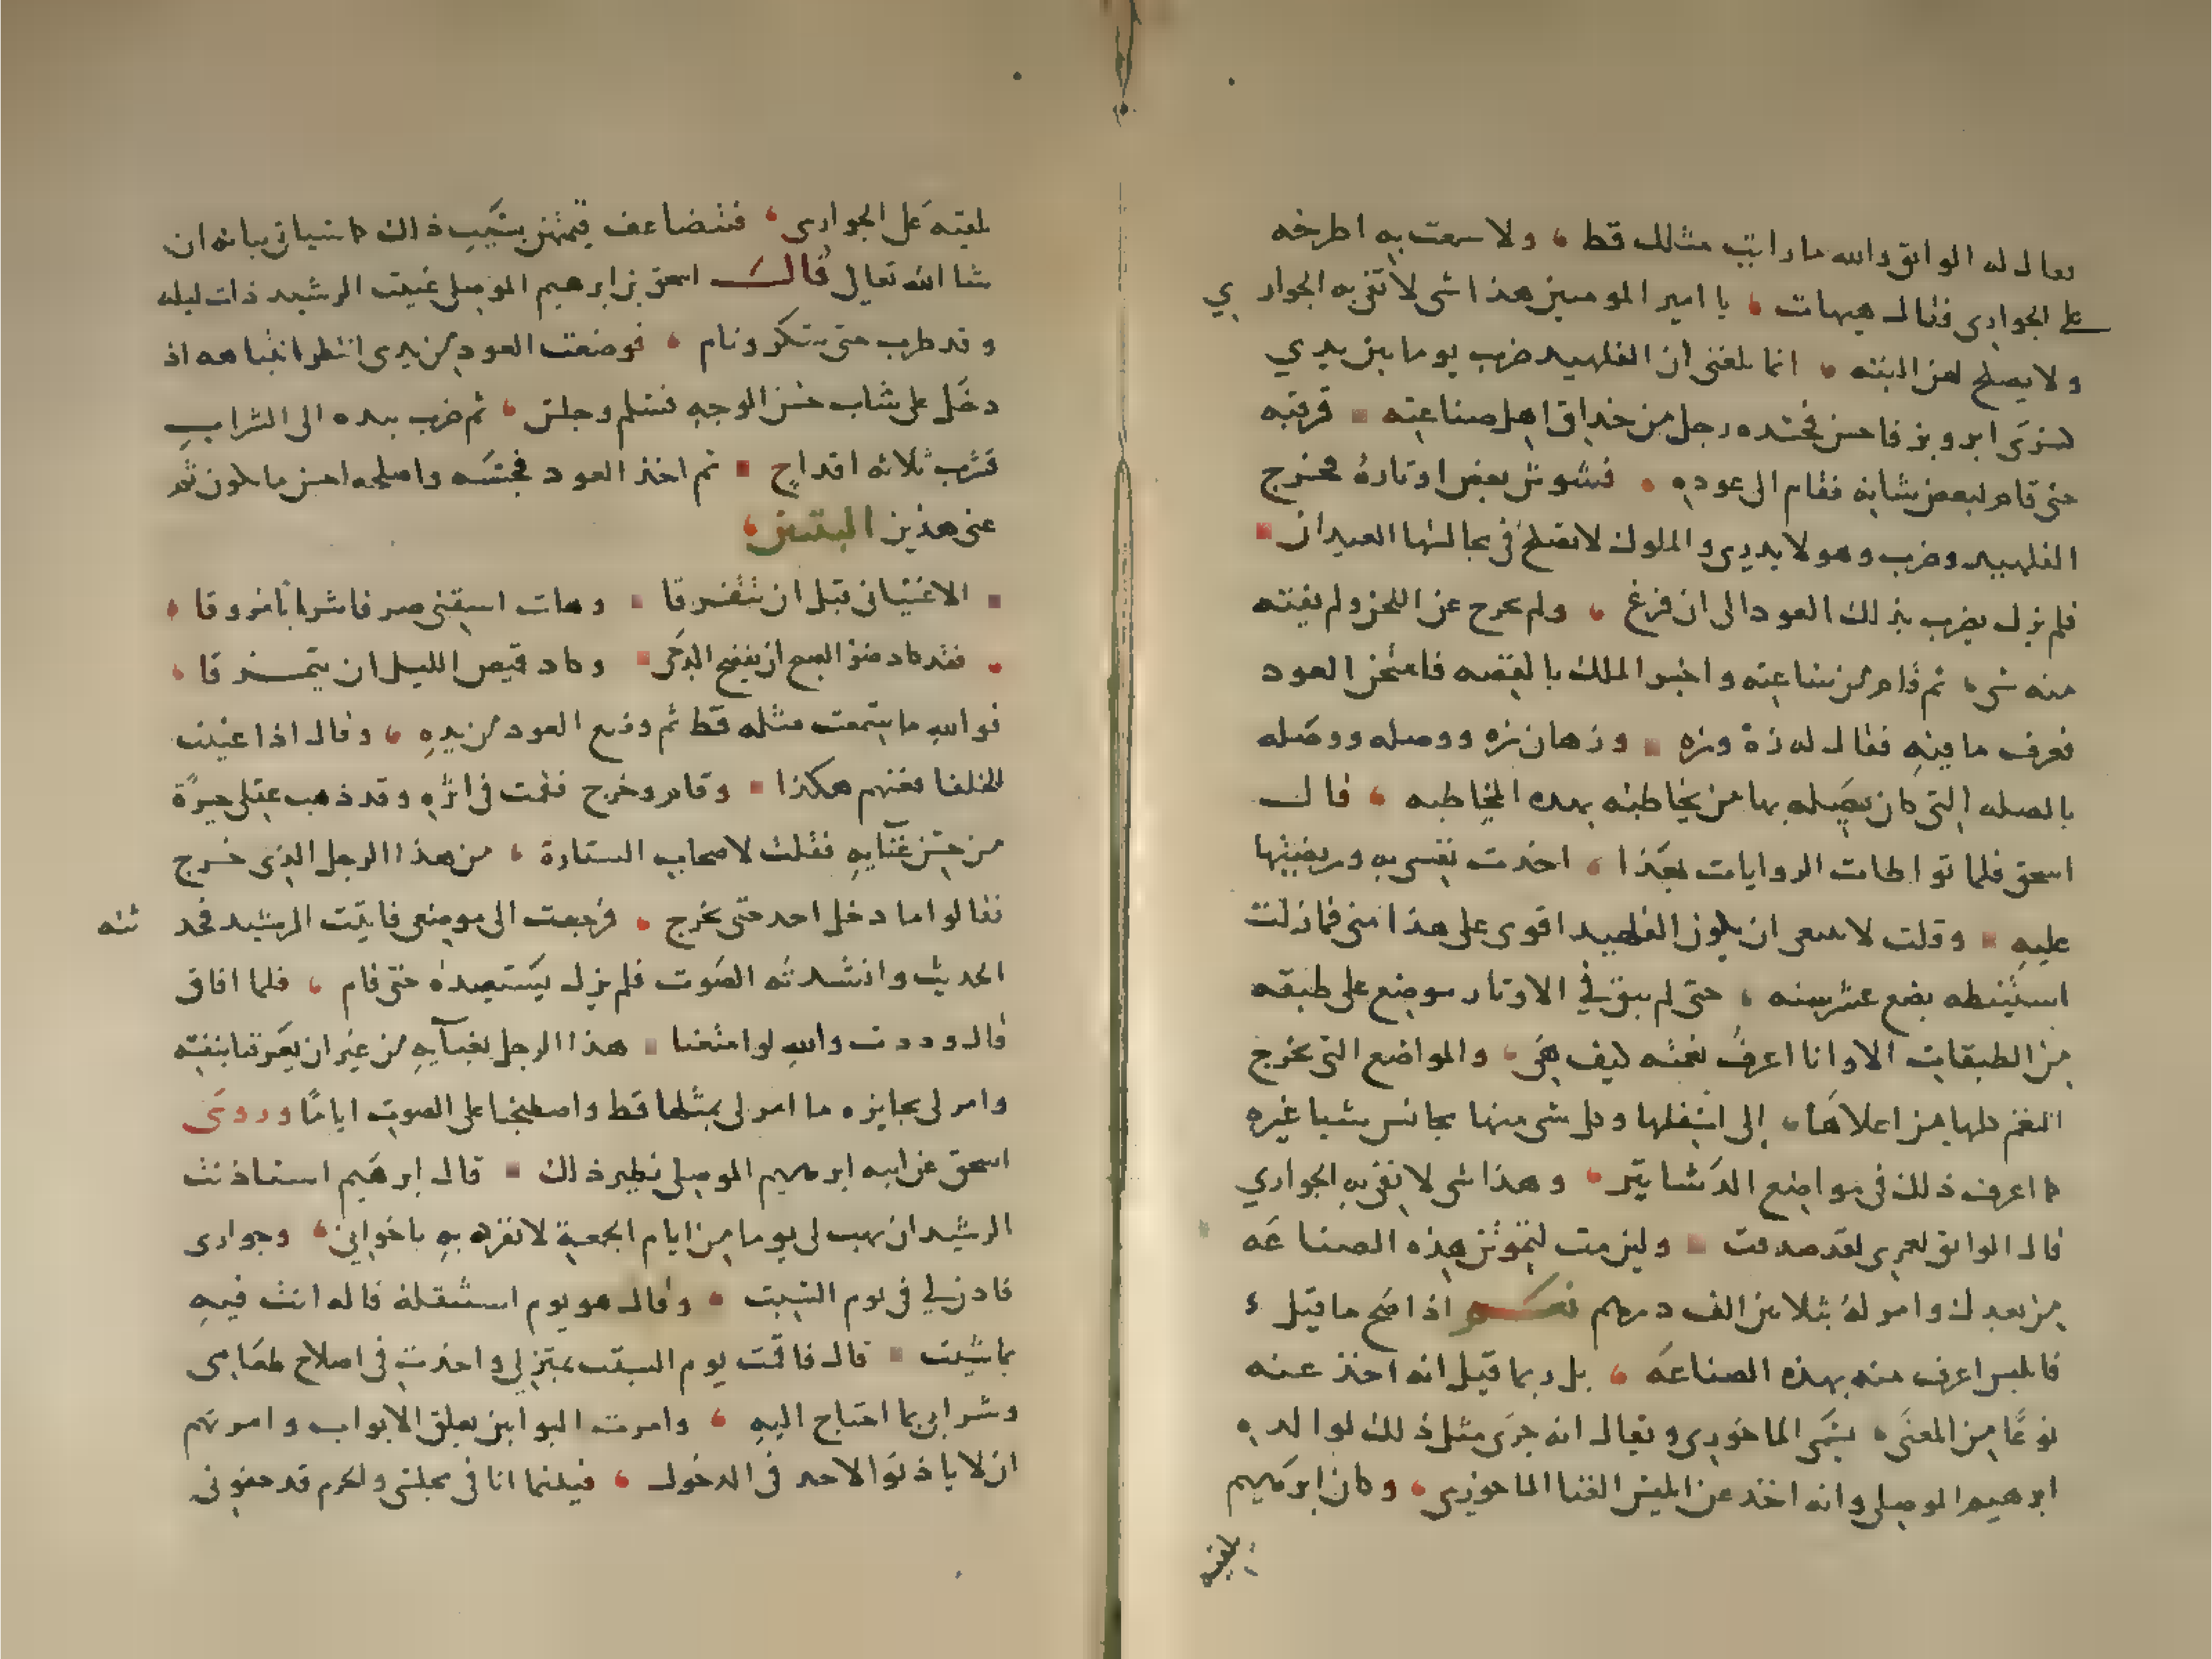 فقال له الواثق والله ما رايت مثلك قط ، ولا سمعت به اطرحه
على الجواري فقال هيهات ، يا امير المومنين هذا شي لا تفي به الجواري
ولا يصلح لهن البته ، انما بلغني ان الفلهبيد ضرب يوما بين يدي
كسرى ابرويز فاحسن فحسده رجل من حذاق اهل صناعته فرقبه
حتى قام لبعض شانه فقام الى عوده ، فشوش بعض اوتاره فخرج
الفلهبيد وضرب وهو لا يدري والملوك لا تصلح في مجالسها العيدان
فلم يزل يضرب بذلك العود الى ان فرغ ، ولم يخرج عن اللحن ولم يفته
منه شي ثم قام من ساعته واخبر الملك بالقصه فامتحن العود
فعرف ما فيه فقال له زه وزه وزهان زه ووصله ووصله
بالصله التي كان يصله بها من يخاطبه بهذه المخاطبه ، قال
اسحق فلما تواطات الروايات بهذا ، اخذت نفسي به ورضتها
عليه وقلت لا ينبغي ان يكون الفلهبيد اقوى على هذا مني فمازلت
استنبطه بضع عشر سنه ، حتى لم يبق في الاوتار موضع على طبقه
من الطبقات الا وانا اعرف نغمته كيف هي ، والمواضع التي تخرج
النغم كلها من اعلاها ، الى اسفلها وكل شي منها يجانس شيا غيره
كما اعرف ذلك في مواضع الدساتير ، وهذا شي لا تفي به الجواري
قال الواثق لعمري لقد صدقت ولين مت لتموتن هذه الصناعه
من بعدك وامر له بثلاثين الف درهم نعم اذا صح ما قيل
فابليس اعرف منه بهذه الصناعه ، بل ربما قيل انه اخذ عنه
نوعًا من المعنى ، يسمى الماخوري ويقال انه جرى مثل ذلك لوالده
ابرهيم الموصلي وانه اخذ عن ابليس الغنا الماخوري ، وكان ابرهيم
يلقيه
يلقيه على الجواري ، فتتضاعف قيمتهن بسبب ذلك كما سياتي بيانه ان
شا الله تعالى قال اسحق بن ابرهيم الموصلي غنيت الرشيد ذات ليله
وقد طرب حتى سكر ونام ، فوضعت العود من يدي انتظر انتباهه اذ
دخل علي شاب حسن الوجه فسلم وجلس ، ثم ضرب بيده الى الشراب
فشرب ثلاثه اقداح ثم اخذ العود فجسه واصلحه احسن ما يكون ثم
غنى هذين البيتين ،
الا غنياني قبل ان نتفرقا وهات اسقني صرفا شرابا مروقا ،
فقد كاد ضو الصبح ان يفضح الدجى وكاد قميص الليل ان يتمزقا ،
فوالله ما سمعت مثله قط ثم وضع العود من يده ، وقال اذا غنيت
الخلفا فغنهم هكذا وقام وخرج فقمت في اثره وقد ذهب عقلي حيرة
من حسن غنايه فقلت لاصحاب الستارة ، من هذا الرجل الذي خرج
فقالوا ما دخل احد حتى يخرج ، فرجعت الى موضعي فاتيت الرشيد فحدثته
الحديث وانشدته الصوت فلم يزل يستعيده حتى قام ، فلما افاق
قال وددت والله لو امتعنا هذا الرجل بغنايه من غير ان يعرفنا بنفسه
وامر لي بجايزه ما امر لي بمثلها قط واصطبحنا على الصوت اياما وروى
اسحق عن ابيه ابرهيم الموصلي نظير ذلك قال ابرهيم استاذنت
الرشيد ان يهب لي يوما من ايام الجمعة لانفرد به باخواني ، وجواري
فاذن لي في يوم السبت ، وقال هو يوم استثقله فاله انت فيه
بما شيت قال فاقمت يوم السبت بمنزلي واخذت في اصلاح طعامي
وشرابي بما احتاج اليه ، وامرت البوابين بغلق الابواب وامرتهم
ان لا ياذنوا لاحد في الدخول ، فبينما انا في مجلسي والحرم قد حففوني